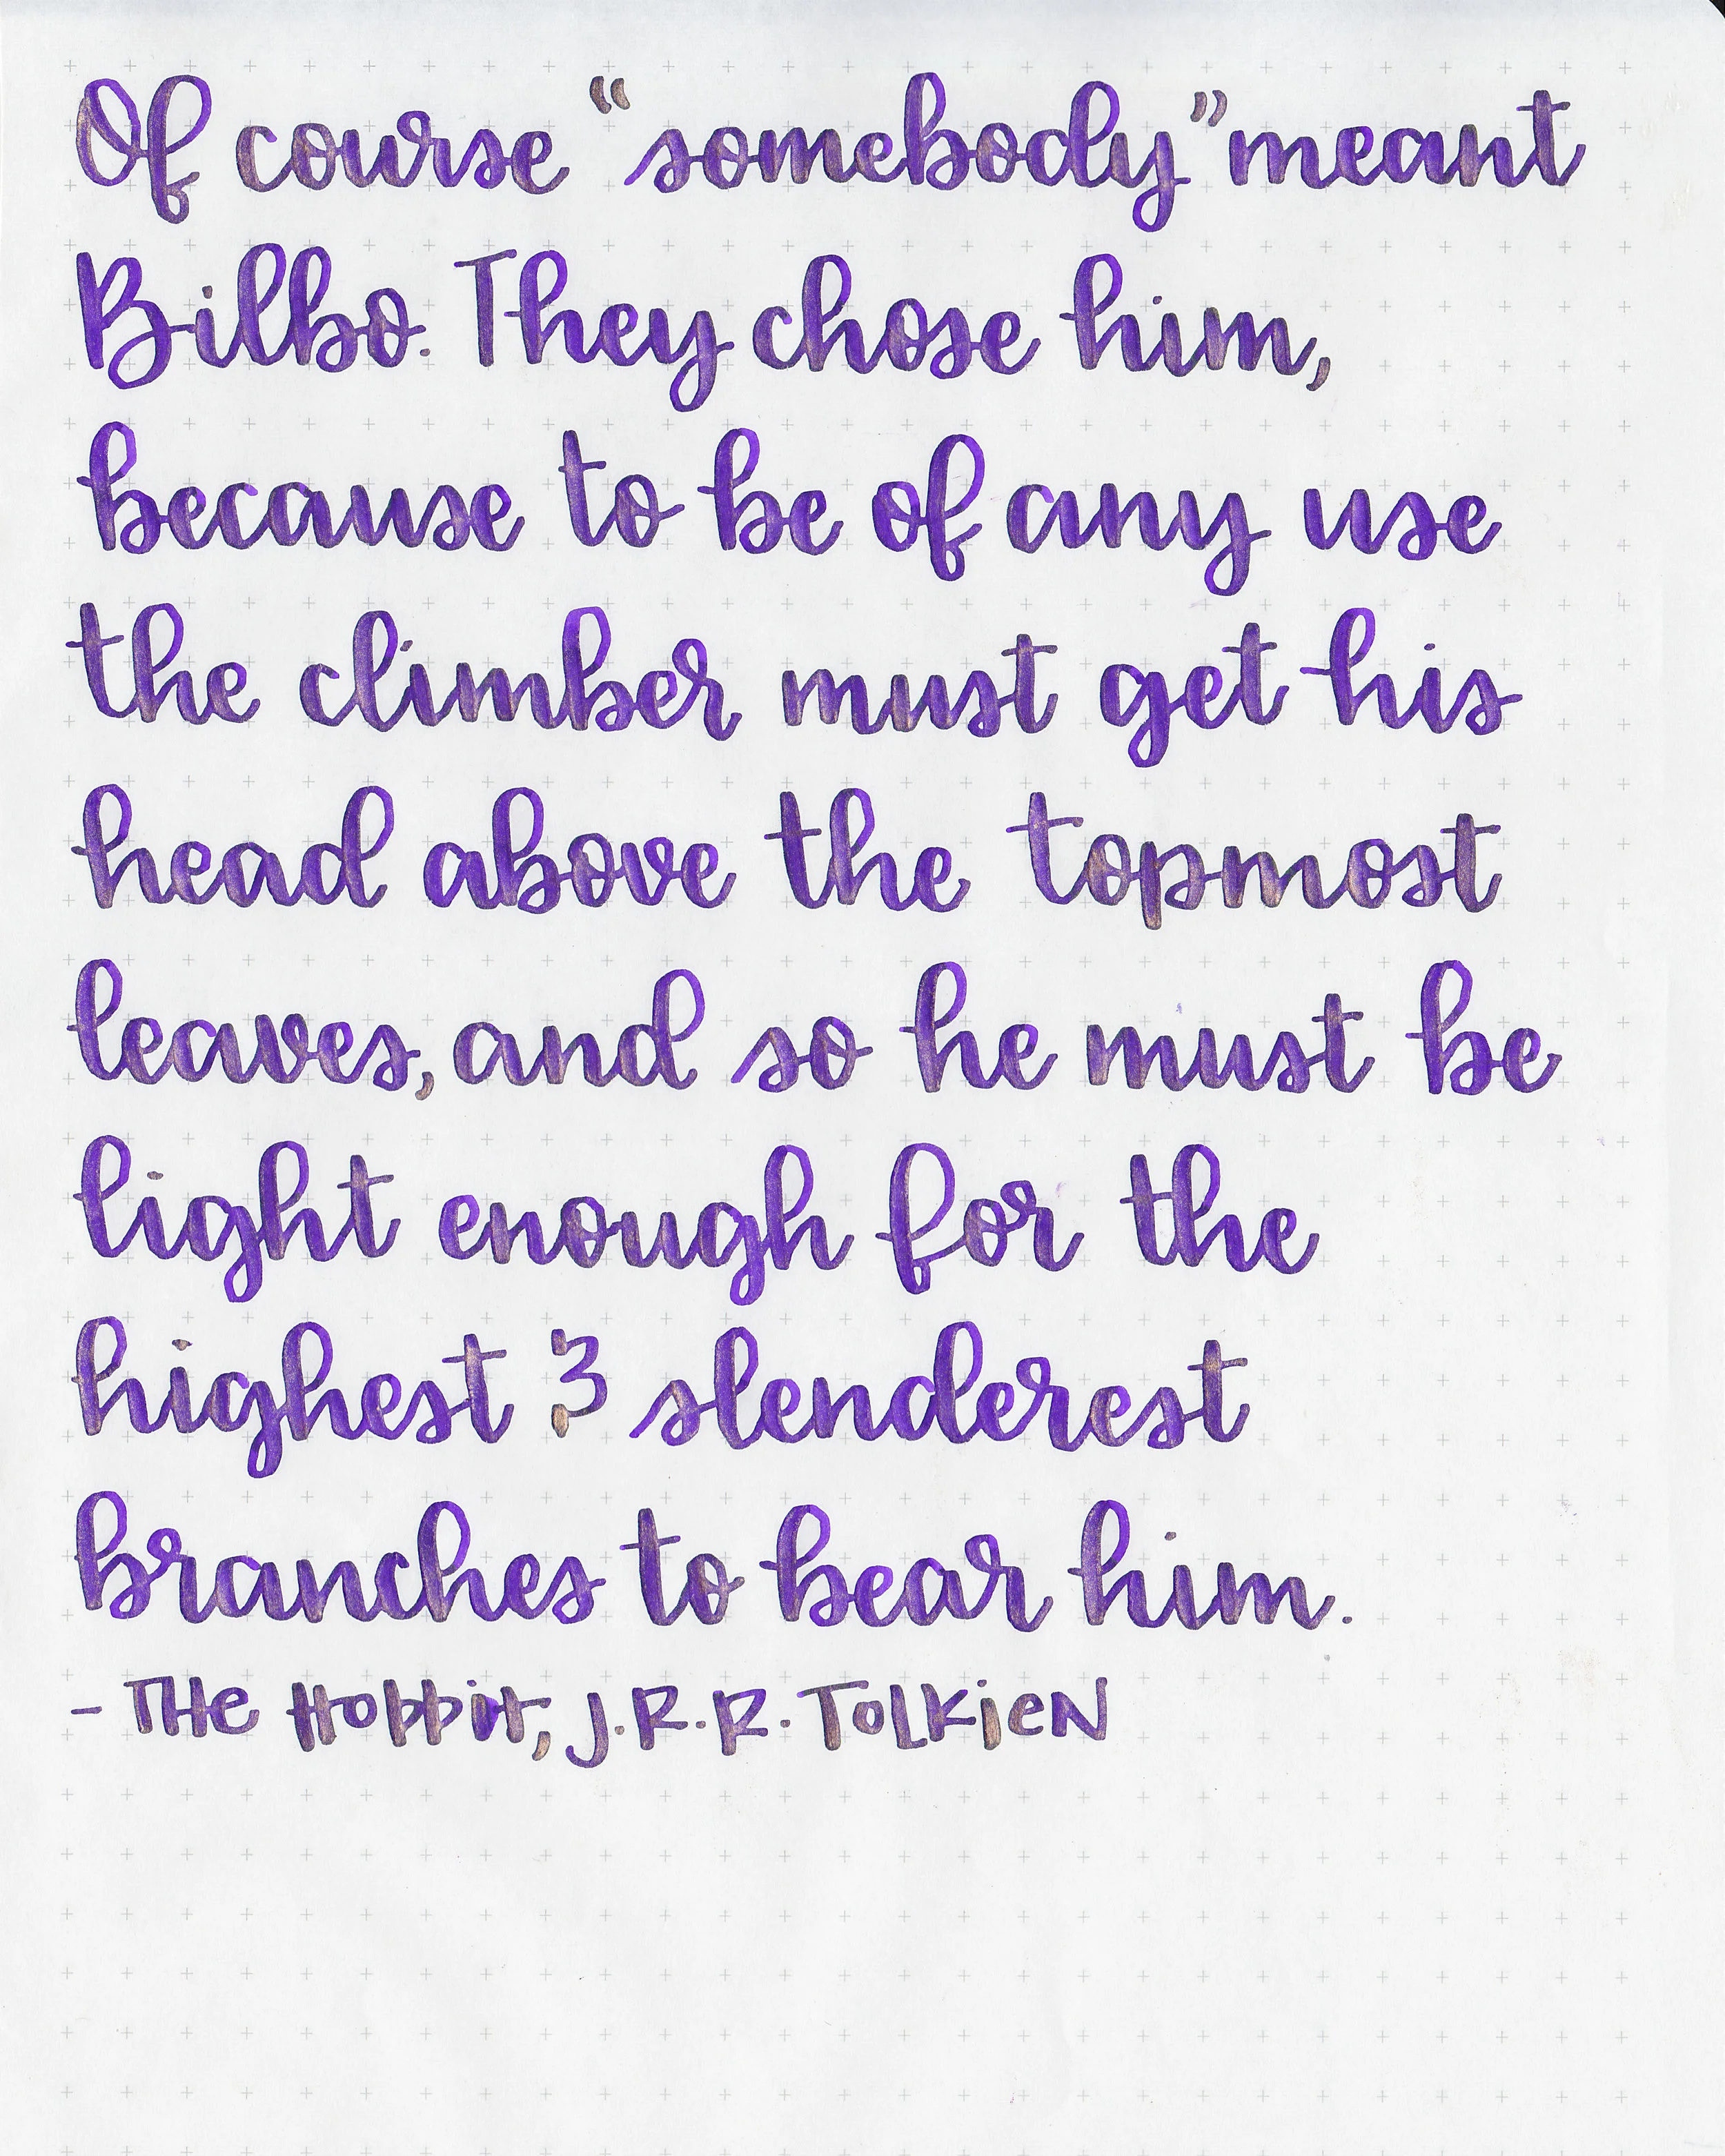 Of course “somebody” meant
Bilbo. They chose him,
because to be of any use
the climber must get his
head above the topmost
leaves, and so he must be
light enough for the
highest & slenderest
branches to bear him.
- The Hobbit, J.R.R. Tolkien